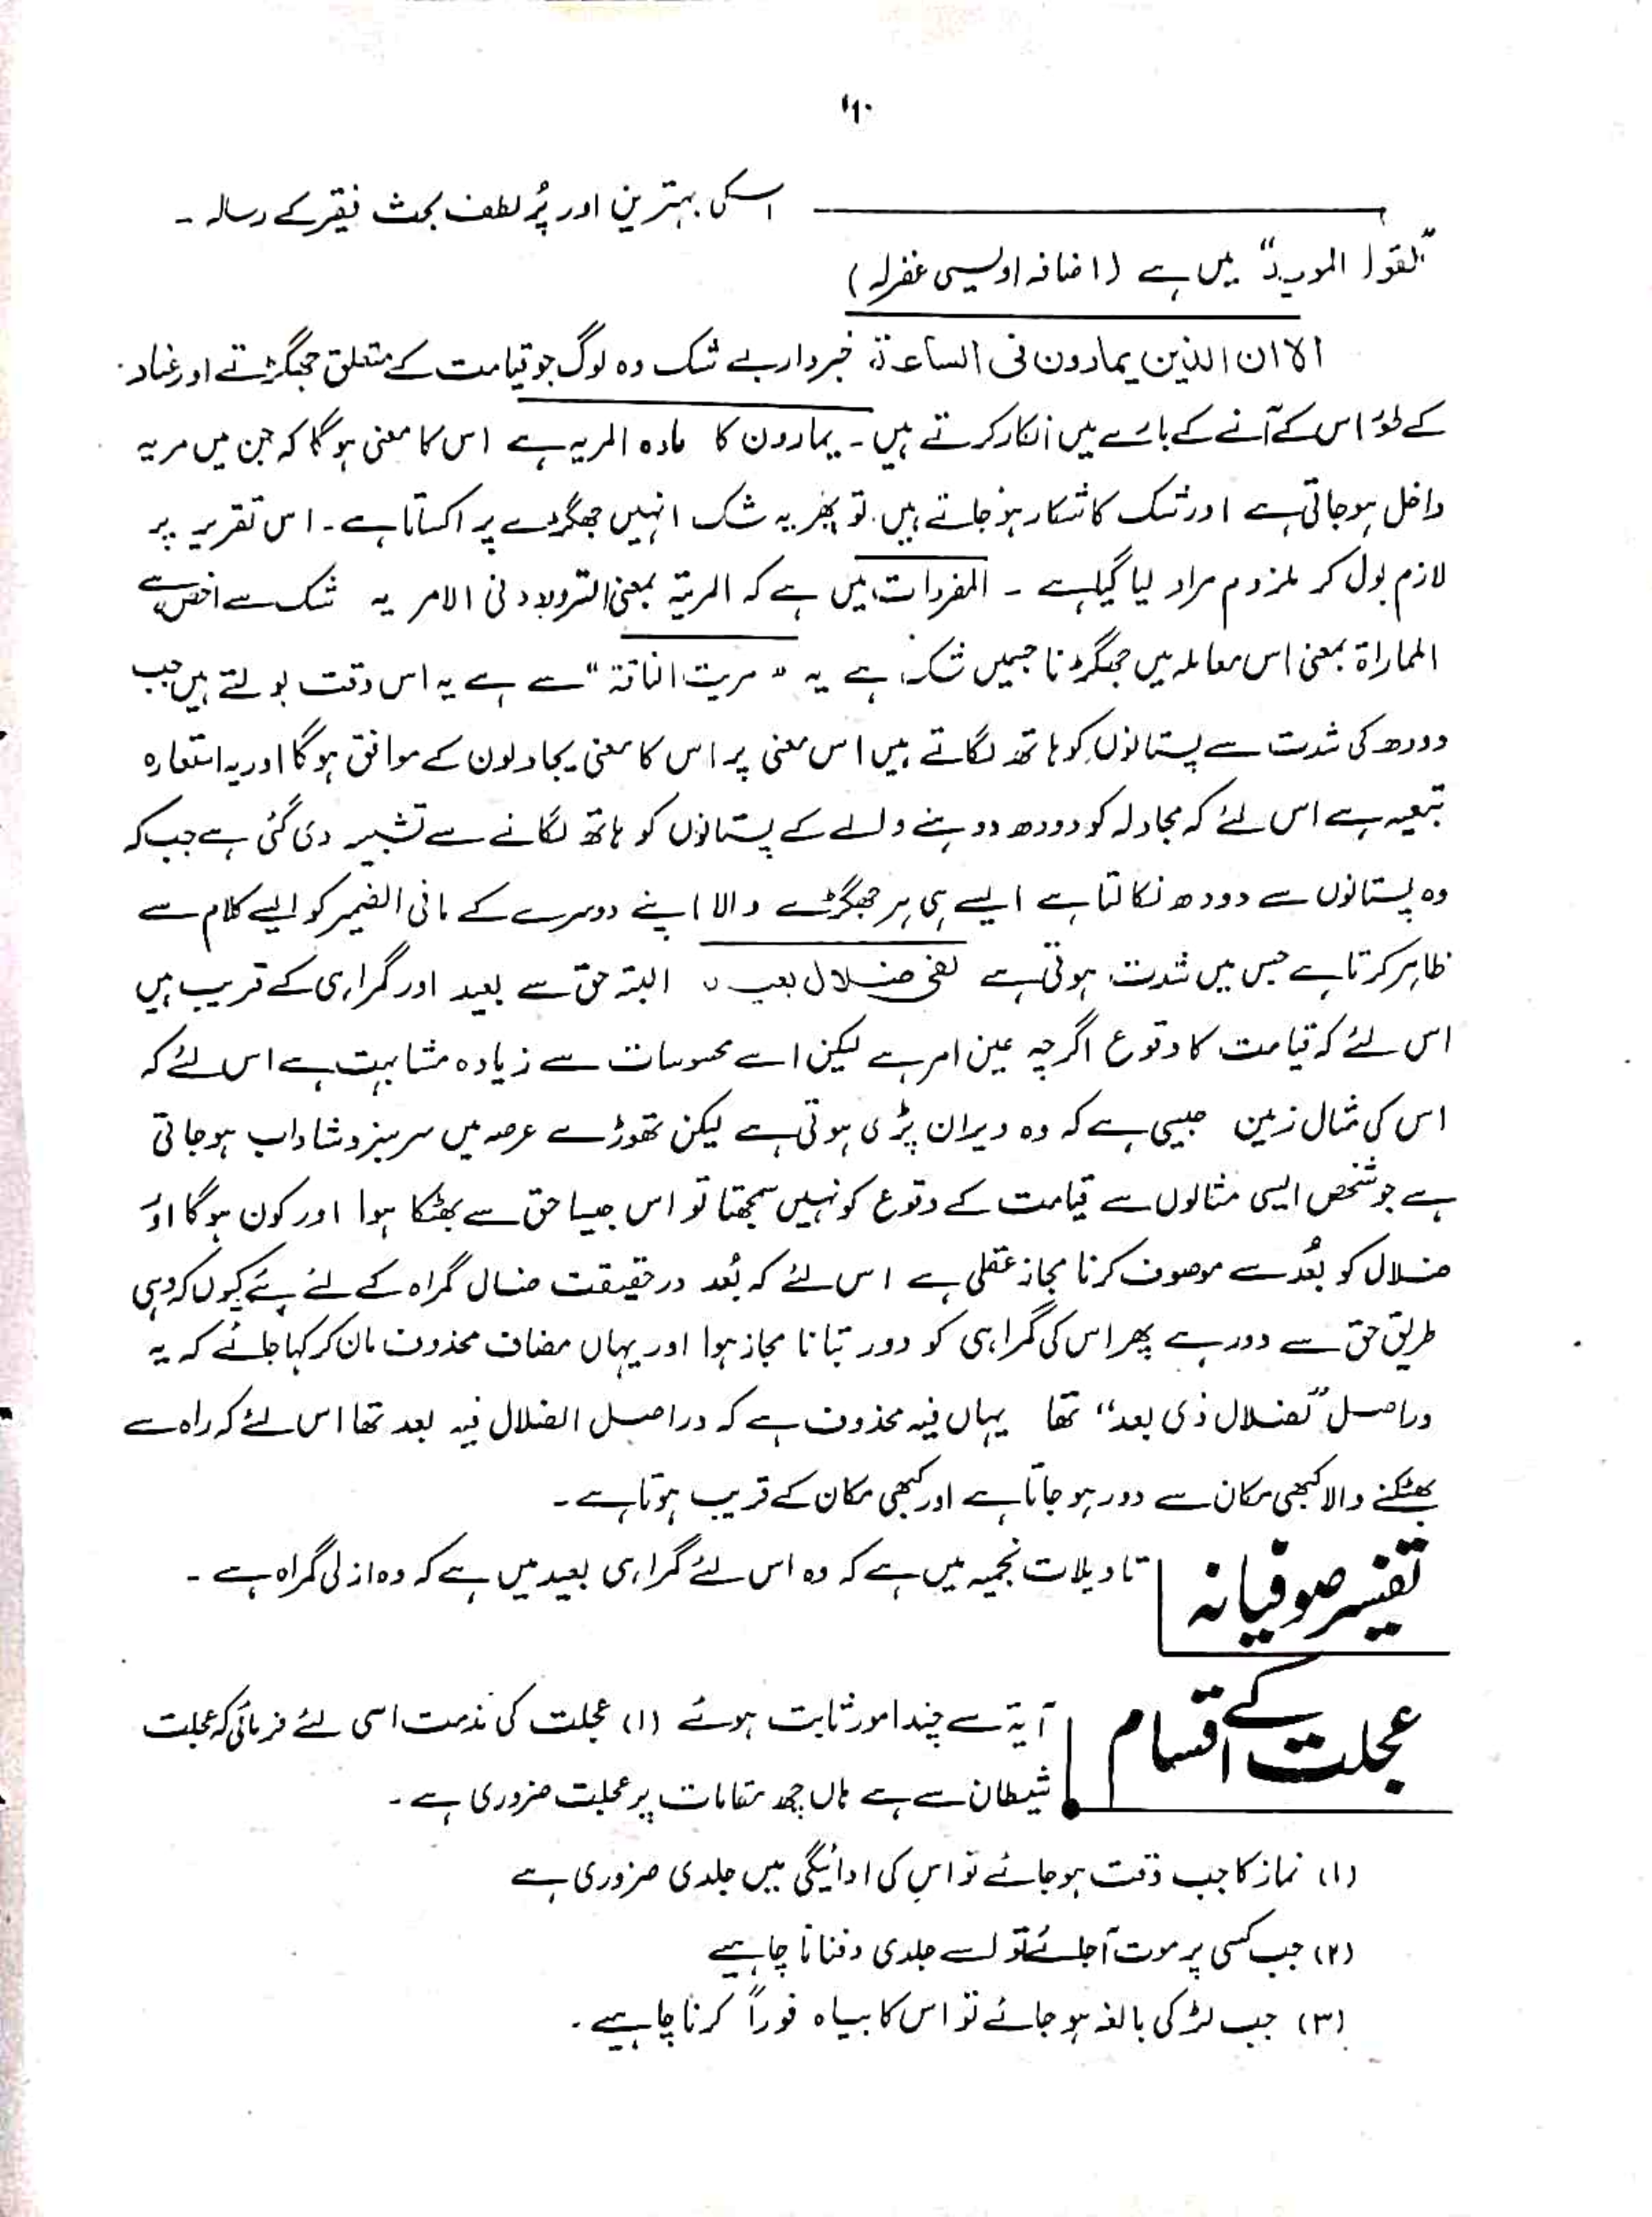 ۶۱۰
اسکی بہترین اور پُر لطف بحث فقیر کے رسالہ ۔
"القول المویدد" میں ہے (اضافہ اویسی غفرلہ)
الا ان الذین یمارون فی الساعۃ، خبردار بے شک وہ لوگ جو قیامت کے متعلق جھگڑتے اور عناد
کے طور اس کے آنے کے بارے میں انکار کرتے ہیں ۔ یمارون کا مادہ المریہ ہے اس کا معنی ہوگا کہ جن میں مریہ
داخل ہوجاتی ہے اور شک کا شکار ہوجاتے ہیں۔ تو پھر یہ شک انہیں جھگڑے پر اکساتا ہے ۔ اس تقریر پر
لازم بول کر ملزوم مراد لیا گیا ہے ۔ المفردات میں ہے کہ المریۃ بمعنی التردد فی الامر یہ شک سے اخص ہے
المماراۃ بمعنی اس معاملہ میں جھگڑنا جسمیں شک ہے یہ "مریت الناقۃ" سے ہے یہ اس وقت بولتے ہیں جب
دودھ کی شدت سے پستانوں کو ہاتھ لگاتے ہیں اس معنی پر اس کا معنی یجادلون کے موافق ہوگا اور یہ استعارہ
تبعیہ ہے اس لئے کہ مجادلہ کو دودھ دوہنے والے کے پستانوں کو ہاتھ لگانے سے تشبیہ دی گئی ہے جب کہ
وہ پستانوں سے دودھ نکالتا ہے ایسے ہی ہر جھگڑے والا اپنے دوسرے کے مافی الضمیر کو ایسے کلام سے
ظاہر کرتا ہے جس میں شدت ہوتی ہے لفی ضلال بعید ۝ البتہ حق سے بعید اور گمراہی کے قریب ہیں
اس لئے کہ قیامت کا وقوع اگرچہ عین امر ہے لیکن اسے محسوسات سے زیادہ مشابہت ہے اس لئے کہ
اس کی مثال زمین جیسی ہے کہ وہ ویران پڑی ہوتی ہے لیکن تھوڑے عرصہ میں سرسبز و شاداب ہوجاتی
ہے جو شخص ایسی مثالوں سے قیامت کے وقوع کو نہیں سمجھتا تو اس جیسا حق سے بھٹکا ہوا اور کون ہوگا اور
ضلال کو بُعد سے موصوف کرنا مجاز عقلی ہے اس لئے کہ بُعد درحقیقت ضال گمراہ کے لئے ہے کیوں کہ وہی
طریق حق سے دور ہے پھر اس کی گمراہی کو دور بتانا مجاز ہوا اور یہاں مضاف محذوف مان کر کہا جائے کہ یہ
دراصل "لفضلال ذی بعد" تھا یہاں فیہ محذوف ہے کہ دراصل الضلال فیہ بعد تھا اس لئے کہ راہ سے
بھٹکنے والا کبھی مکان سے دور ہوجاتا ہے اور کبھی مکان کے قریب ہوتا ہے ۔
تفسیر صوفیانہ
تاویلات نجمیہ میں ہے کہ وہ اس لئے گمراہی بعید میں ہے کہ وہ ازلی گمراہ ہے ۔
عجلت کے اقسام
آیۃ سے چند امور ثابت ہوئے (۱) عجلت کی مذمت اسی لئے فرمائی کہ عجلت
شیطان سے ہے ہاں چھ مقامات پر عجلت ضروری ہے ۔
(۱) نماز کا جب وقت ہوجائے تو اس کی ادائیگی میں جلدی ضروری ہے
(۲) جب کسی پر موت آجائے تو اسے جلدی دفنانا چاہیے
(۳) جب لڑکی بالغہ ہو جائے تو اس کا بیاہ فوراً کرنا چاہیے ۔